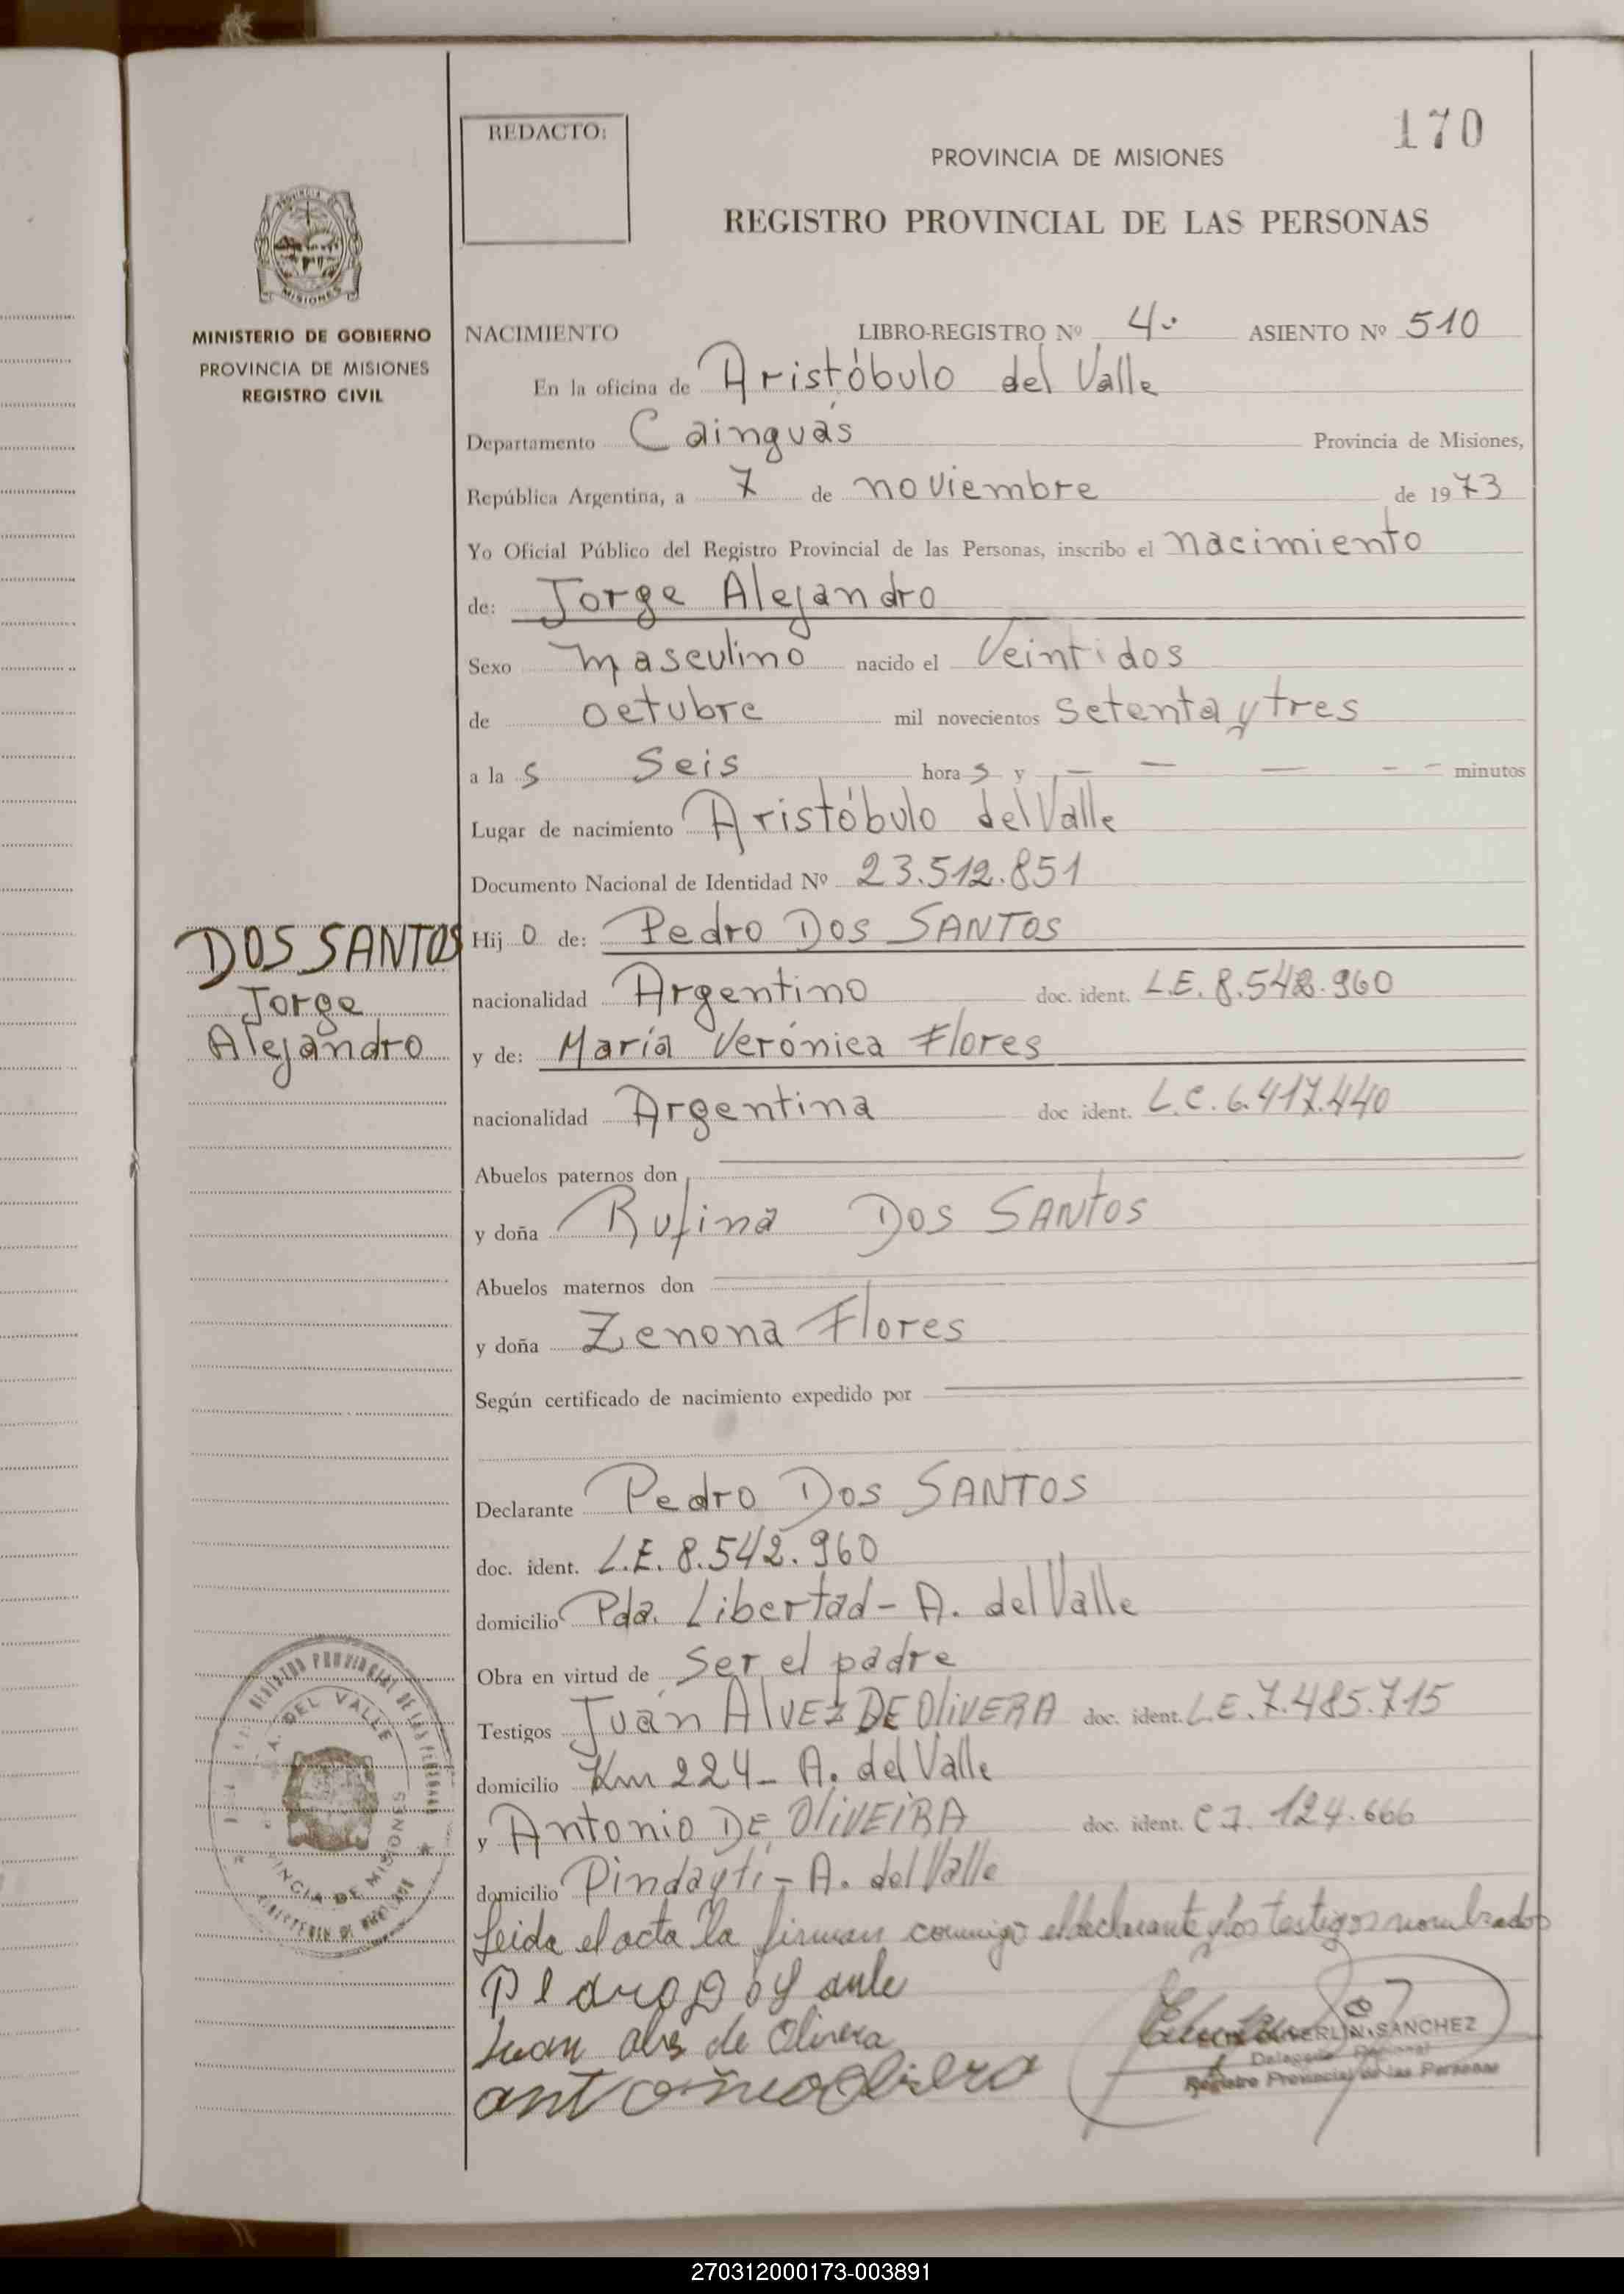 170
REDACTO:
PROVINCIA DE MISIONES
REGISTRO PROVINCIAL DE LAS PERSONAS
PROVINCIA
MISIONES
MINISTERIO DE GOBIERNO
PROVINCIA DE MISIONES
REGISTRO CIVIL
NACIMIENTO LIBRO-REGISTRO Nº 4º ASIENTO Nº 510
En la oficina de Aristóbulo del Valle
Departamento Cainguás Provincia de Misiones,
República Argentina, a 7 de noviembre de 1973
Yo Oficial Público del Registro Provincial de las Personas, inscribo el nacimiento
de: Jorge Alejandro
Sexo masculino nacido el Veintidos
de octubre mil novecientos setenta y tres
a las Seis horas y — — — — — minutos
Lugar de nacimiento Aristóbulo del Valle
Documento Nacional de Identidad Nº 23.512.851
DOS SANTOS
Jorge
Alejandro
Hijo de: Pedro DOS SANTOS
nacionalidad Argentino doc. ident. L.E. 8.542.960
y de: María Verónica Flores
nacionalidad Argentina doc ident. L.C. 6.417.440
Abuelos paternos don
y doña Rufina DOS SANTOS
Abuelos maternos don
y doña Zenona Flores
Según certificado de nacimiento expedido por
Declarante Pedro DOS SANTOS
doc. ident. L.E. 8.542.960
domicilio Pda. Libertad - A. del Valle
Obra en virtud de Ser el padre
Testigos Juan AlVEZ DE OliVERA doc. ident. L.E. 7.485.715
domicilio Km 224 - A. del Valle
y Antonio DE OliVEiRA doc. ident. C I. 124.666
domicilio Pindaytí - A. del Valle
Leida el acta la firman conmigo el declarante y los testigos nombrados
REGISTRO PROVINCIAL DE LAS PERSONAS
A. DEL VALLE
PROVINCIA DE MISIONES
Juan de Olivera
SANCHEZ
Delegado Regional
Registro Provincial de las Personas
270312000173-003891